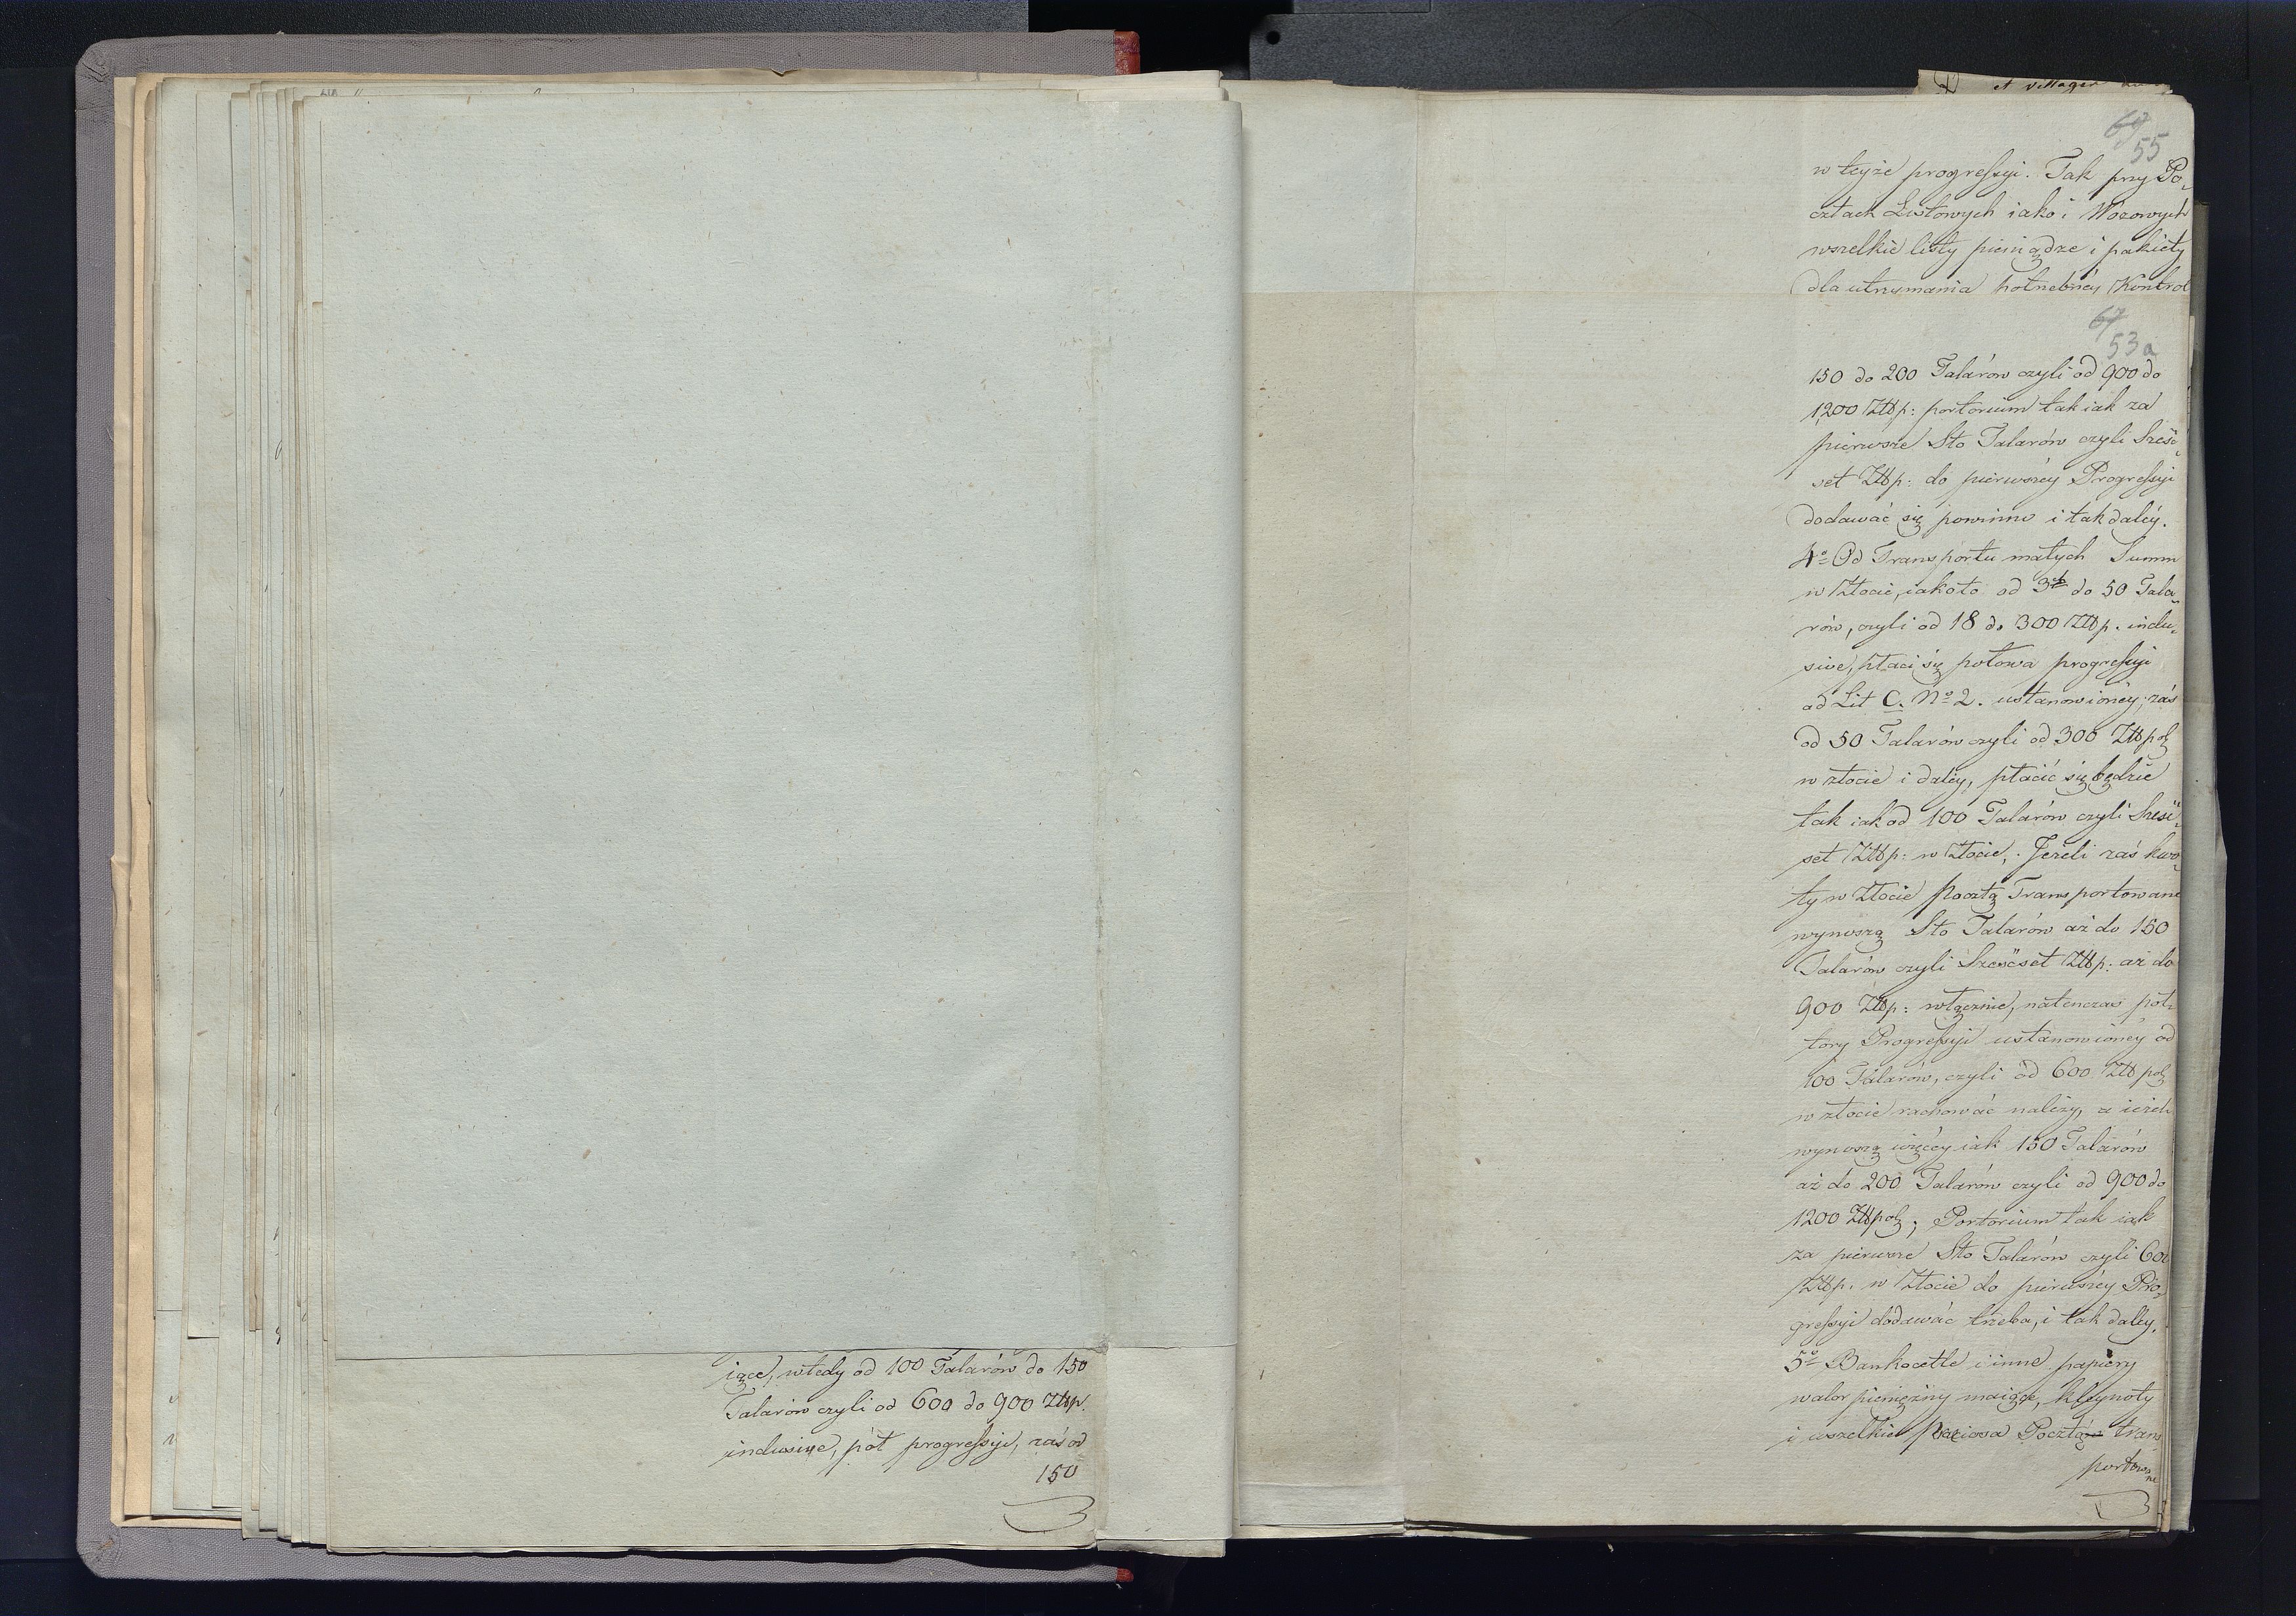 iące, wtedy od 100 Talarów do 150
Talarów czyli od 600 do 900 Złłp.
inclusive, pół progressyi, zaś od
150
et villages
69
55
w teyże progressyi. Tak przy Po„
cztach Listowych iako i Wozowych
wszelkie listy pieniądze i pakiety
dla utrzymania potrzebnéy Kontrol
67
53a
150 do 200 Talarów czyli od 900 do
1,200 Złłp: portorium tak iak za
pierwsze Sto Talarów czyli Sześć„
set Złłp: do pierwszéy Progressyi
dodawać się powinno i tak daléy.
4º Od Transportu małych Summ
w Złocie, iako to od 3ch do 50 Tala„
rów, czyli od 18 do 300 Złłp. inclu„
sive, płaci się połowa progressyi
ad Lit C. Nº 2. ustanowionéy; zaś
od 50 Talarów czyli od 300 Złłpol
w złocie i daléy, płacić się będzie
tak iak od 100 Talarów czyli Sześć„
set Złłp: w Złocie,. Jeżeli zaś kwo„
ty w Złocie Pocztą Transportowane
wynoszą Sto Talarów aż do 150
Talarów czyli Sześćset Złłp: aż do
900 Złłp: włącznie, natenczas pół„
tory Progressyi ustanowionéy od
100 Talarów, czyli od 600 Złłpol
w złocie rachować należy, a ieżeli
wynoszą więcéy iak 150 Talarów
aż do 200 Talarów czyli od 900 do
1200 Złłpol; Portorium tak iak
za pierwsze Sto Talarów czyli 600
Złłp. w Złocie do pierwszéy Pro„
gressyi dodawać trzeba, i tak daléy.
5º Bankocetle i inne papiery
walor pieniężny maiące, kleynoty
i wszelkie Preciosa Pocztą trans
portowane